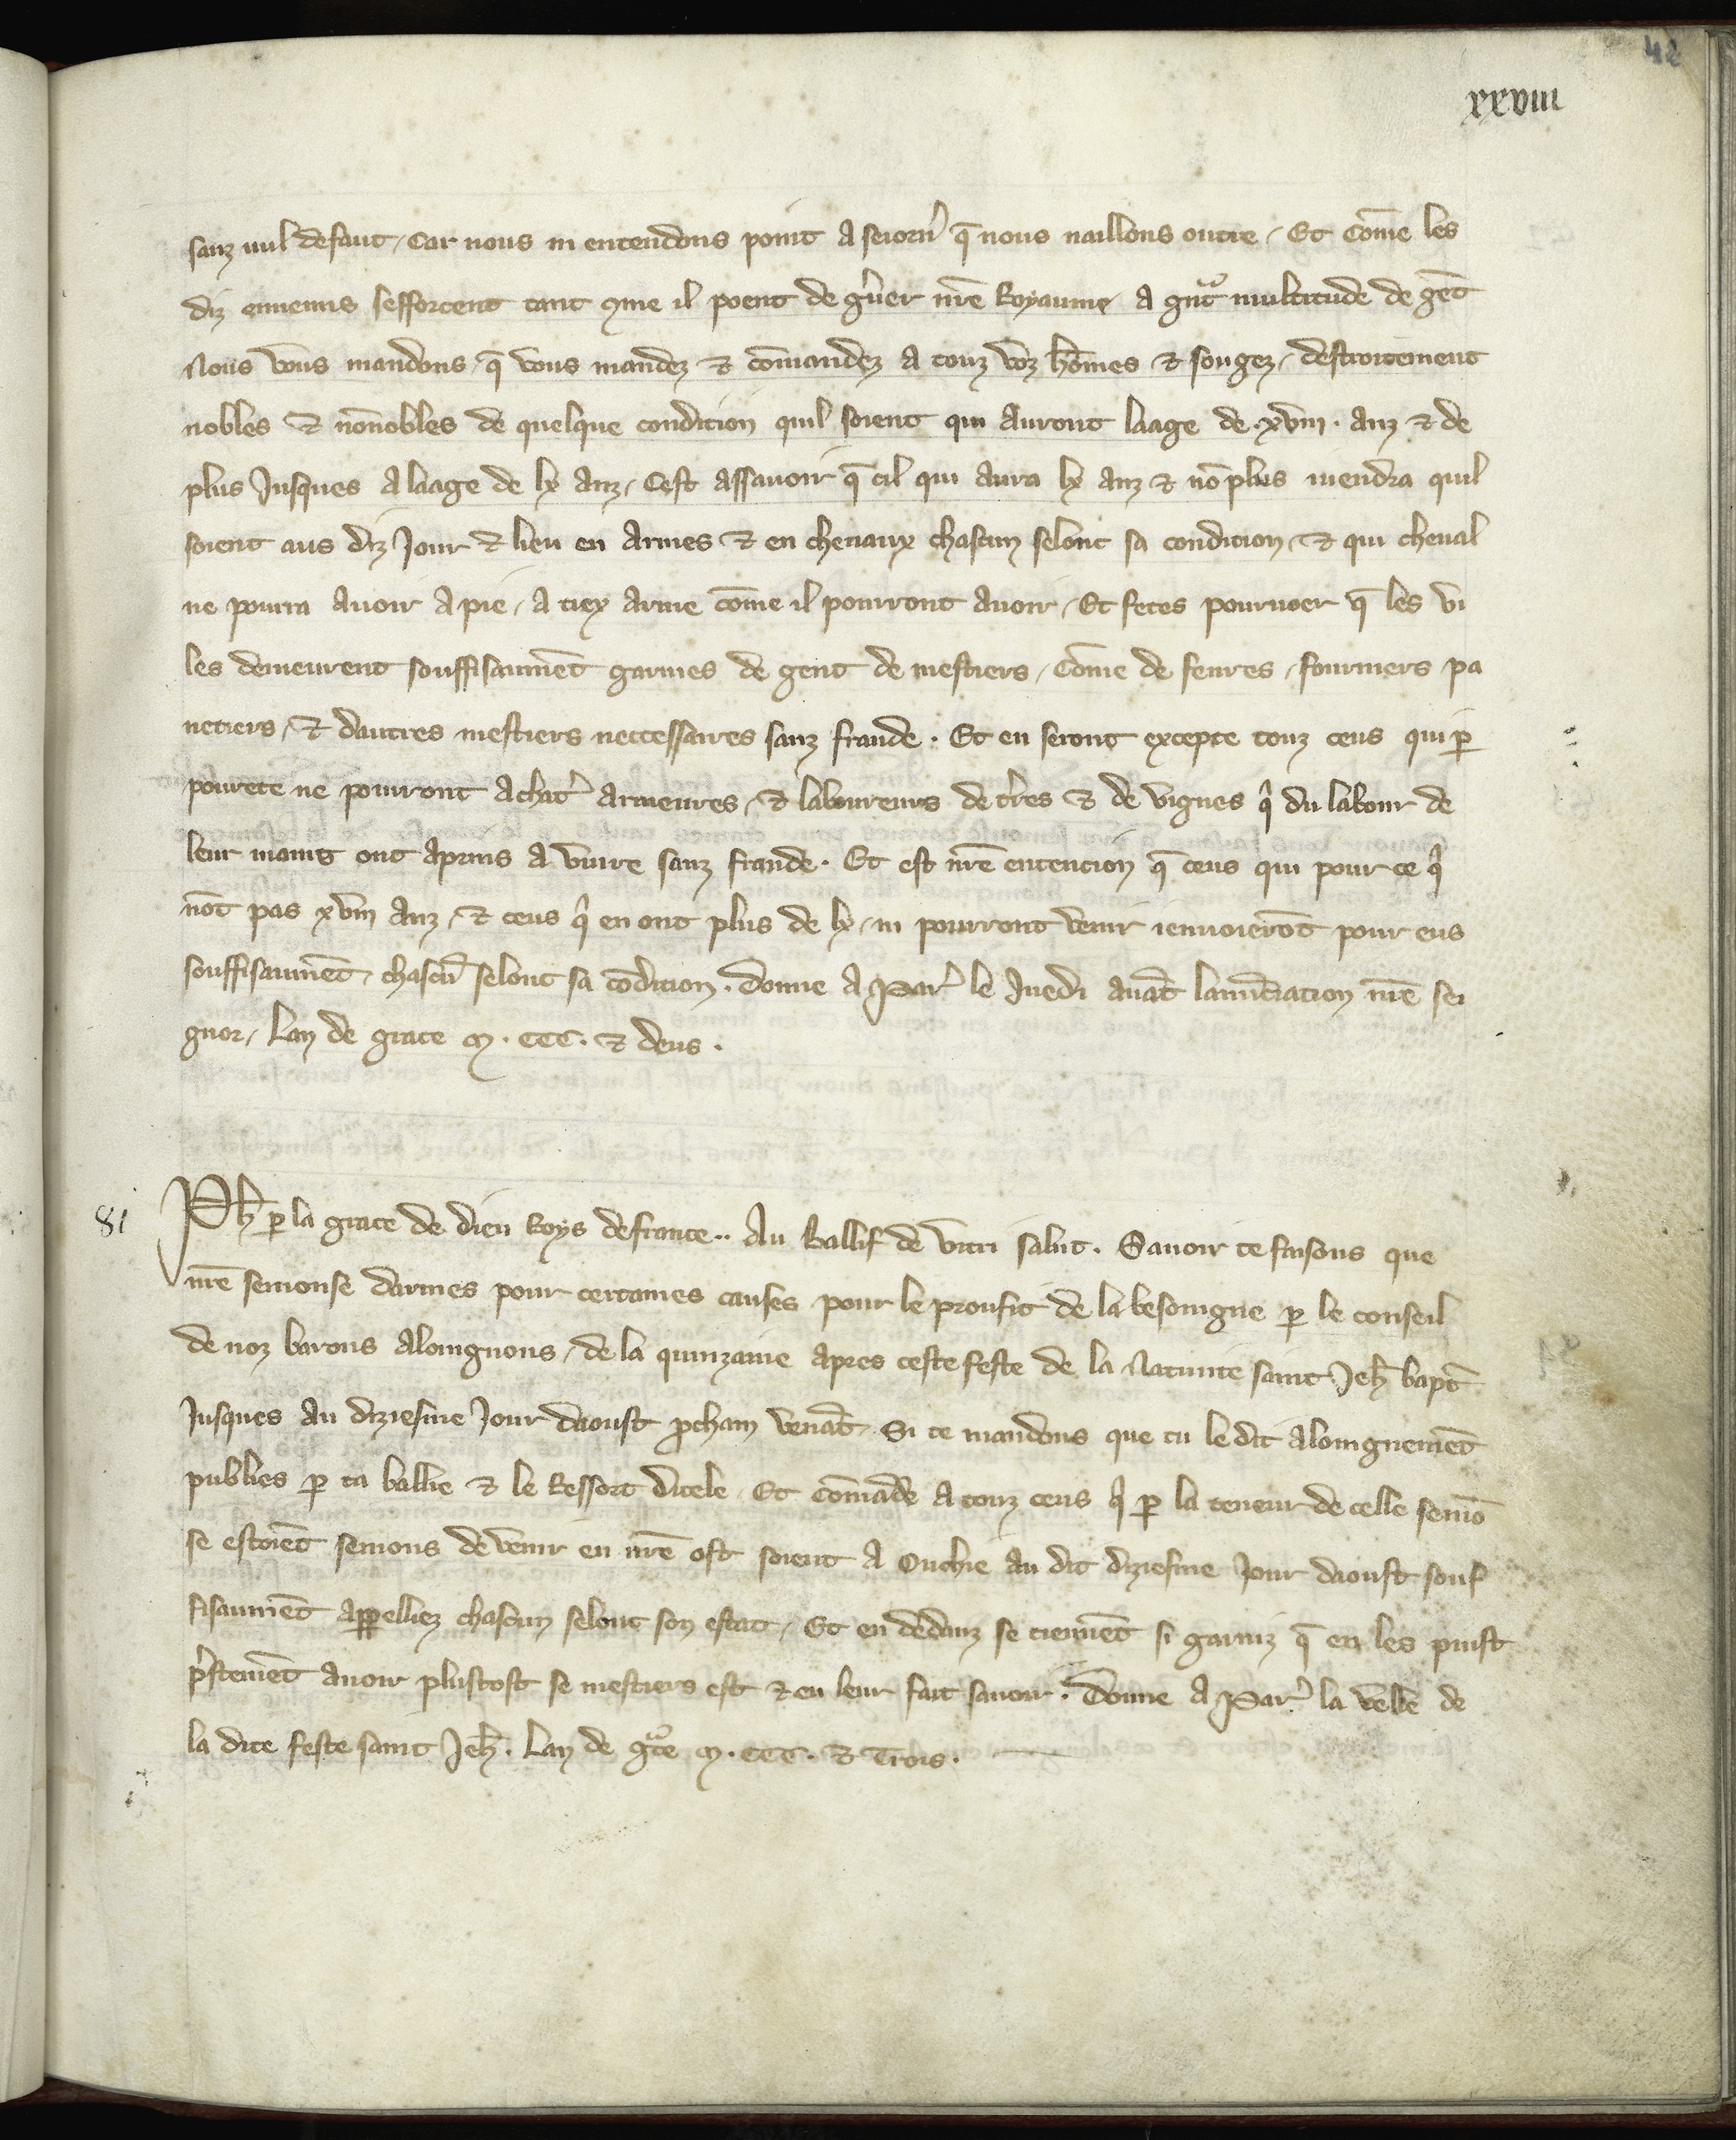 42
xxviii
sanz nul defaut, Car nous ni entendons point a seiorn̉ q̄ nous naillons outre, Et Com̄e les
diz ennemis sefforcent tant ꝯme il poent de g̉uer nr̄e Royaume, a gᵃnt multitude de gēt
Nous vous mandons, q̄ vous mandez ⁊ com̄andez a touz voz hōmes ⁊ sougez, destroitement
nobles ⁊ non nobles de quelque condicion quil soient qui auront laage de .xviii. anz ⁊ de
plus Jusques a laage de lx anz, Cest assauoir q̄ cil qui aura lx anz ⁊ nō plus viendra quil
soient aus diz Jour ⁊ lieu en armes ⁊ en cheuaux chascun selonc sa condicion, ⁊ qui cheual
ne pourra auoir a pie, a tiex arme com̄e il pourront auoir, Et fetes pouruoer q̄ les vi
les demeurent souffisaumēt garnies de gent de mestiers, Com̄e de feures, fourniers pa
netiers, ⁊ dautres mestiers neccessaires sanz fraude. Et en seront excepte touz ceus qui ꝑ
pourete ne pourront achat̉ armeures, ⁊ laboureurs de t̉res ⁊ de vignes qⁱ du labour de
leur mains ont apriis a viure sanz fraude. Et est nr̄e entencion q̄ ceus qui pour ce qⁱ
nōt pas xviii anz, ⁊ ceus qⁱ en ont plus de lx, ni pourront venir ienuoierōt pour eus
souffisaumēt, chascū selonc sa cōdicion. Donne a Par̉ le Juedi auāt lanūciation nr̄e sei
gnor, Lan de grace m. ccc. ⁊ deus.
81
Ph̄ ꝑ la grace de dieu Roys de france.. Au Ballif de Vitri salut. Sauoir te faisons que
nr̄e semonse darmes pour certaines causes pour le proufit de la besoingne ꝑ le conseil
de noz barons aloingnons, de la quinzaine apres ceste feste de la Natiuite saint Jeh̄ bapt̄
Jusques au diziesme Jour daoust ꝓcham venāt, Si te mandons que tu le dit aloingnemēt
publies ꝑ ta ballie ⁊ le Ressort dicele, Et com̄āde a touz ceus qⁱ ꝑ la teneur de celle semō
se estoiēt semons de venir en nr̄e ost soient a Ouchie au dit diziesme Jour daoust souf
fisaumēt appelliez chascun selonc son estat, Et en dedanz se tiennēt si garniz q̄ en les puist
p̉stemēt auoir plustost se mestiers est ⁊ en leur fait sauoir. Donne a Par̉ la veille de
la dite feste saint Jeh̄. Lan de gᵃce m. ccc. ⁊ Trois.